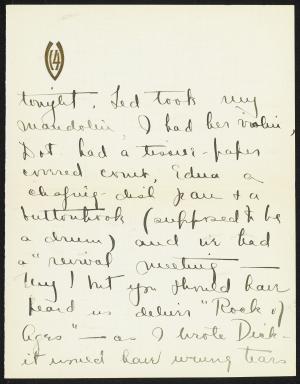 tonight. Led took my
mandolin, I had her violin,
Dot had a tissue-paper
covered comb, Edna a
chafing-dish pan & a
buttonhook (supposed to be
a drum) and we had
a "revival meeting" —
My! but you should have
heard us deliver "Rock of
Ages" — as I wrote Dick —
it would have wrung tears